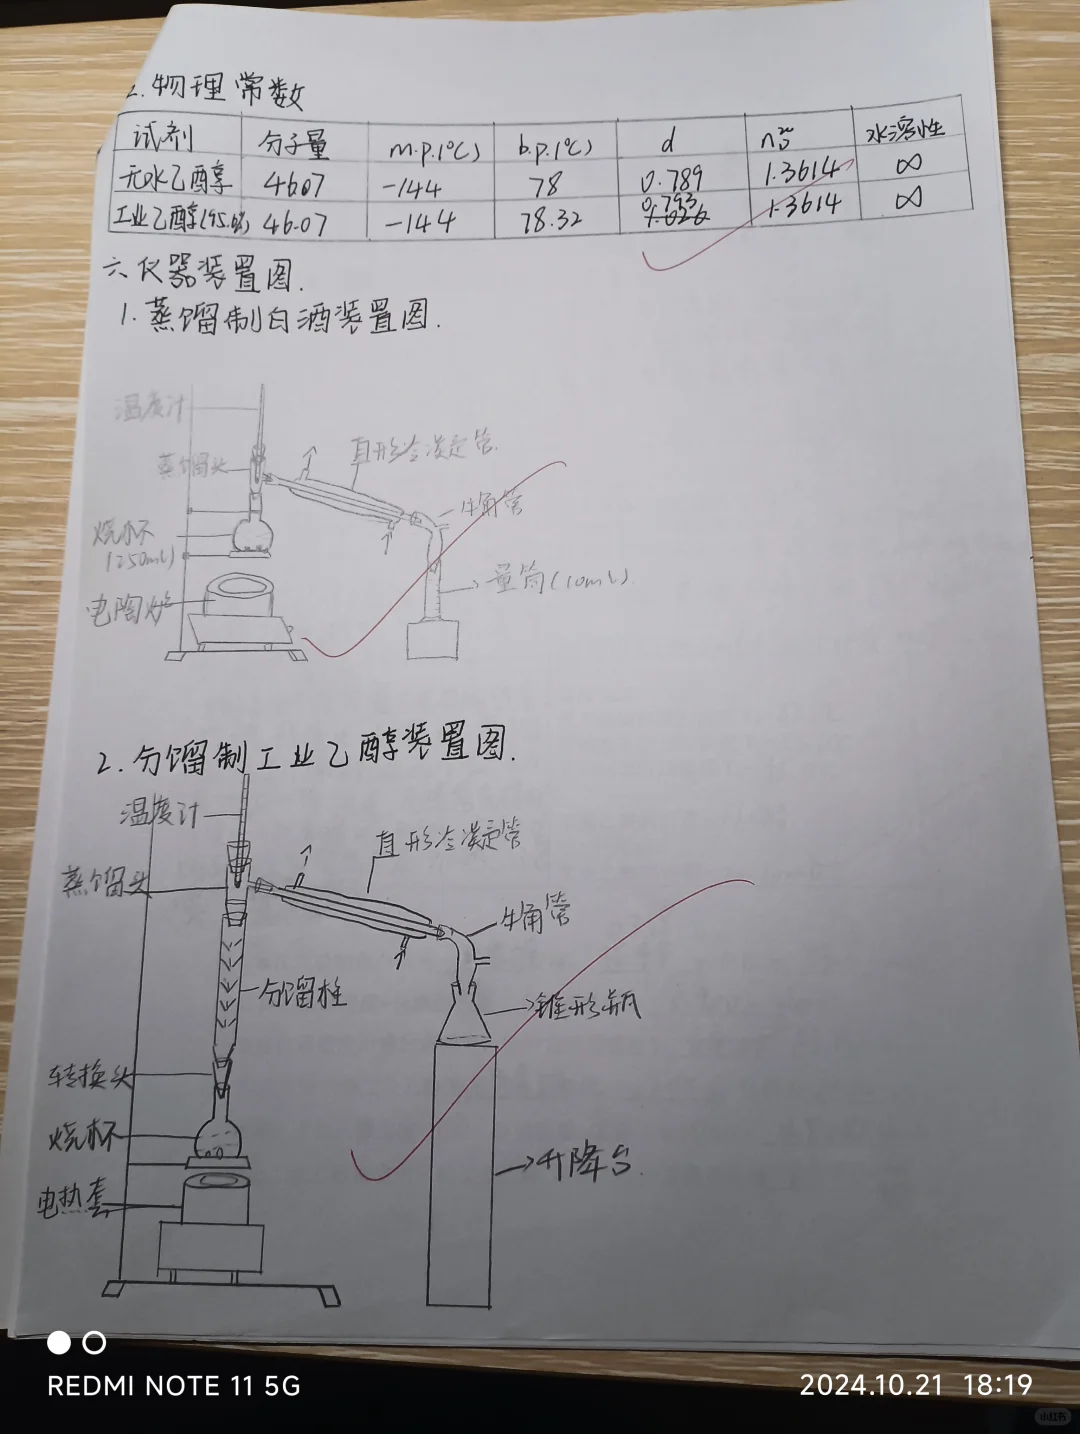 2.物理常数
试剂 分子量 m.p.(℃) b.p.(℃) d n20D 水溶性
无水乙醇 4607 -144 78 0.789 1.3614 ∞
工业乙醇(95.6%) 46.07 -144 78.32 0.793 1.3614 ∞
六仪器装置图.
1.蒸馏制白酒装置图.
温度计
直形冷凝管
蒸馏头
牛角管
烧杯
(250mL)
量筒(10mL)
电陶炉
2.分馏制工业乙醇装置图.
温度计
直形冷凝管
蒸馏头
牛角管
分馏栓
锥形瓶
转换头
烧杯
升降台.
电热套
REDMI NOTE 11 5G
2024.10.21 18:19
小红书